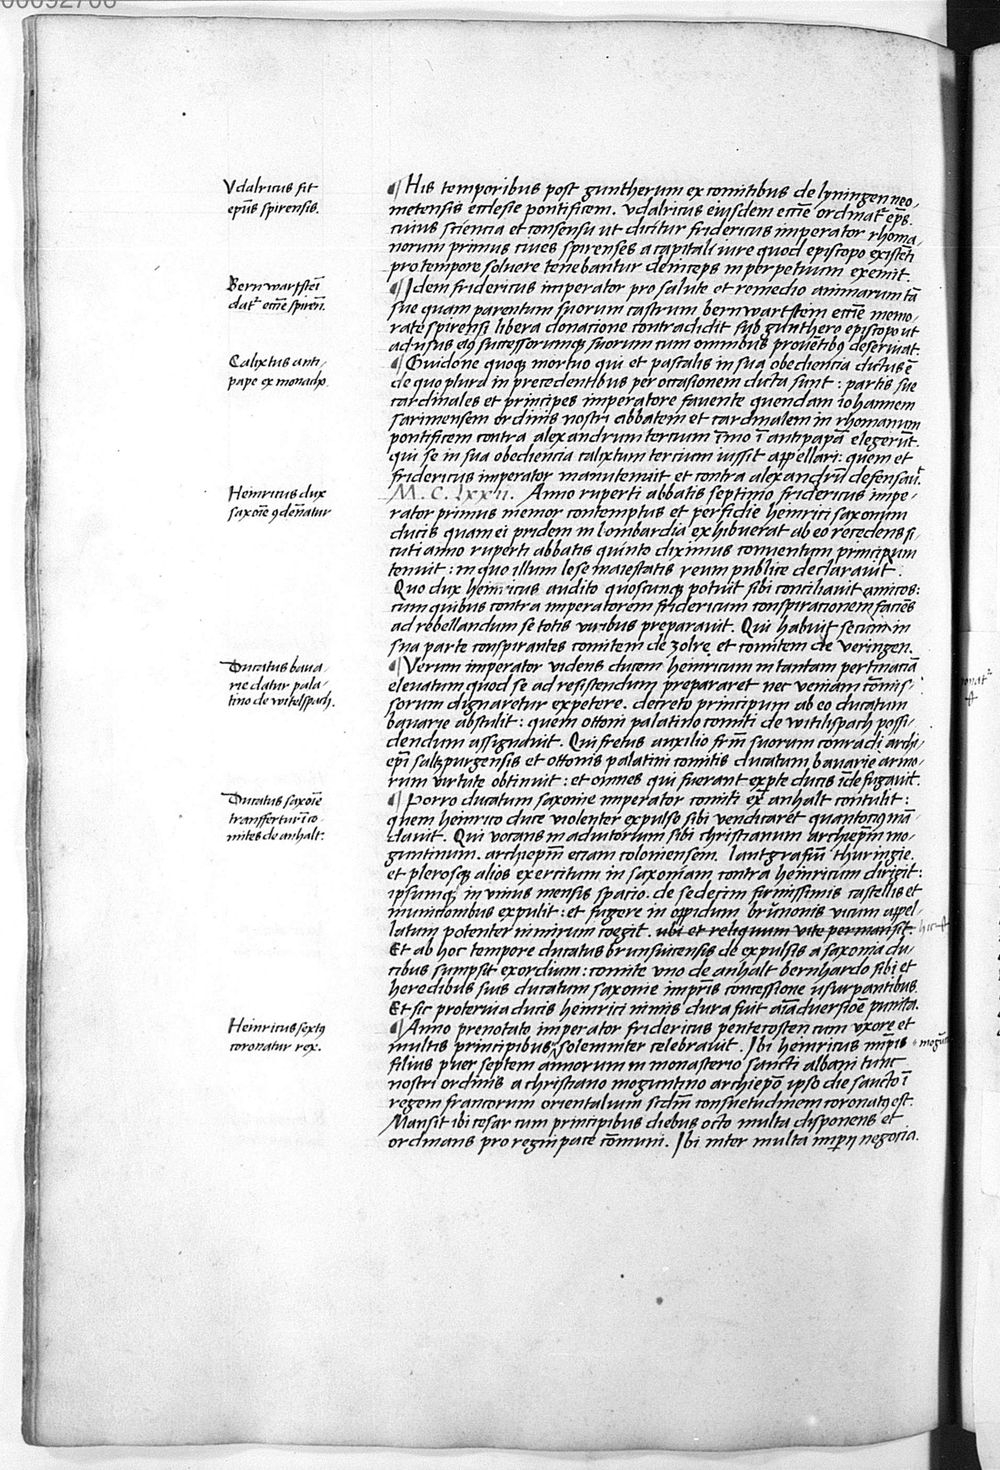 00092706
Vdalricus fit
ep̄us spirensis.
¶ His temporibus post guntherum ex comitibus de lyningen neo,
metensis ecclesie pontificem. vdalricus eiusdem eccl̄ie ordinat᷑ ep̄s.
cuius sciencia et consensu ut dicitur fridericus imperator rhoma,
norum primus ciues spirenses a capitali iure quod episcopo existēti
pro tempore soluere tenebantur deinceps in perpetuum exemit.
Bernwartstei
dat᷑ eccl̄ie spireñ.
¶ Idem fridericus imperator pro salute et remedio animarum tā
sue quam parentum suorum castrum bernwartstem eccl̄ie memo,
rate spirensi libera donacione contradidit sub gunthero episcopo ut
ad usus eiꝯ successorumqꝫ suorum cum omnibus prouētibꝯ deseruiat.
Calixtus anti,
pape ex monachꝯ.
¶ Guidone quoqꝫ mortuo qui et pascalis in sua obediencia dictus ē
de quo plura in precedentibus per occasionem dicta sunt : partis sue
cardinales et principes imperatore fauente quendam iohannem
sarimensem ordinis nostri abbatem et cardinalem in rhomanum
pontificem contra alexandrum tercium īmo ī antipapā elegerūt.
qui se in sua obediencia calixtum tercium iussit appellari: quem et
fridericus imperator manutenuit et contra alexandrū defensauit.
Heinricus dux
saxoīe ꝯdēnatur
M. C. lxxii. Anno ruperti abbatis septimo fridericus impe,
rator primus memor contemptus et perfidie heinrici saxonum
ducis quam ei pridem in lombardia exhibuerat ab eo recedens si,
cuti anno ruperti abbatis quinto diximus conuentum principum
tenuit : in quo illum lese maiestatis reum publice declarauit.
Quo dux heinricus audito quoscunqꝫ potuit sibi conciliauit amicos:
cum quibus contra imperatorem fridericum conspiracionem faciēs
ad rebellandum se totis viribus preparauit. Qui habuit secum in
sua parte conspirantes comitem de zolre et comitem de veringen.
Ducatus baua,
rie datur pala,
tino de witelspach.
¶ Verum imperator videns ducem heinricum in tantam pertinaciā
eleuatum quod se ad resistendum prepararet nec veniam cōmis,
sorum dignaretur expetere. decreto principum ab eo ducatum
bauarie abstulit : quem ottoni palatino comiti de witilispach possi,
dendum assignauit. Qui fretus auxilio fr̄m suorum conradi archi,
ep̄i saltzpurgensis et ottonis palatini comitis ducatum bauarie armo,
rum virtute obtinuit : et omnes qui fuerant ex parte ducis īde fugauit.
Ducatus saxoīe
transfertur ī co,
mites de anhalt:
¶ Porro ducatum saxonie imperator comiti ex anhalt contulit :
quem heinrico duce violenter expulso sibi vendicaret quantociꝯ mā,
dauit. Qui vocans in adiutorium sibi christianum archiep̄m mo,
guntinum. archiep̄m eciam coloniensem. lantgrafiū thuringie.
et plerosqꝫ alios exercitum in saxoniam contra heinricum dirigit :
ipsumqꝫ in vnius mensis spacio. de sedecim firmissimis castellis et
municionibus expulit : et fugere in oppidum brunonis vicum appel,
latum potenter nimirum coegit. ubi et reliquum vite permansit. hic
Et ab hoc tempore ducatus brunsuicensis de expulsis a saxonia du,
cibus sumpsit exordium : comite vno de anhalt bernhardo sibi et
heredibus suis ducatum saxonie impr̄is concessione vsurpantibus.
Et sic proteruia ducis heinrici nimis dura fuit aīaduersioē punita.
Heinricus sextꝯ
coronatur rex.
¶ Anno prenotato imperator fridericus pentecosten cum vxore et
multis principibus solemniter celebrauit. Ibi heinricus imp̄ris
filius puer septem annorum in monasterio sancti albani tunc
nostri ordinis a christiano moguntino archiep̄o ipso die sancto ī
regem francorum orientalium scdm̄ consuetudinem coronatꝯ est.
Mansit ibi cesar cum principibus diebus octo multa disponens et
ordinans pro regni pace cōmuni. Ibi inter multa imperij negocia.